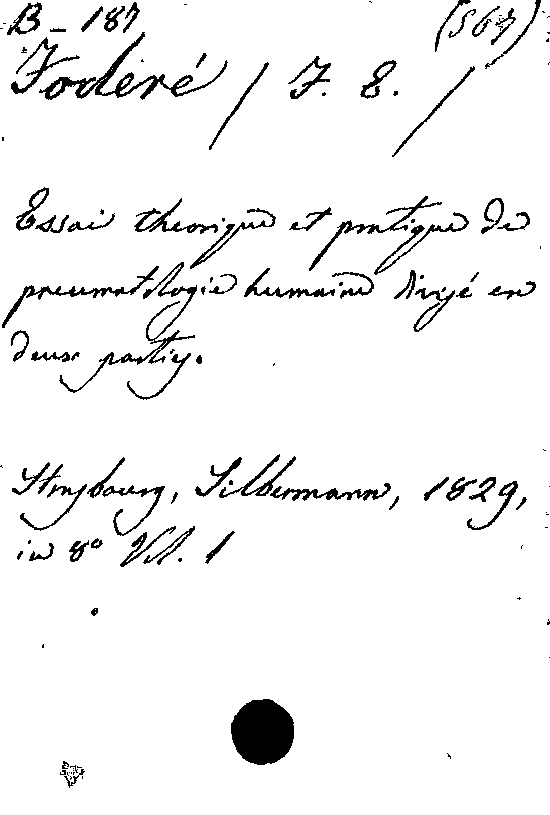 B - 187 (567)
Foderé / F. E. /
Essai theorique et pratique de
pneumatologie humaine divijé en
deux partiy.
Strasbourg, Silbermann, 1829,
in 8° Vol. 1